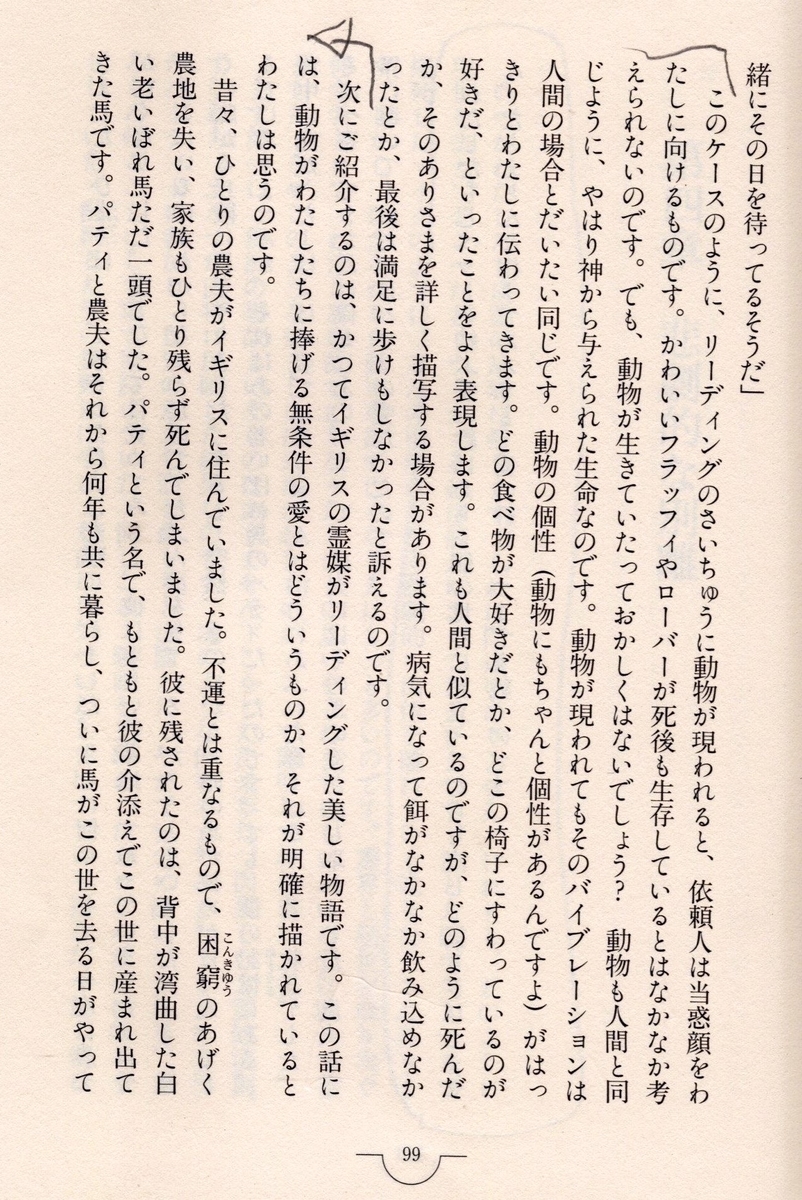 緒にその日を待ってるそうだ」
このケースのように、リーディングのさいちゅうに動物が現われると、依頼人は当惑顔をわ
たしに向けるものです。かわいいフラッフィやローバーが死後も生存しているとはなかなか考
えられないのです。でも、動物が生きていたっておかしくはないでしょう？　動物も人間と同
じように、やはり神から与えられた生命なのです。動物が現われてもそのバイブレーションは
人間の場合とだいたい同じです。動物の個性（動物にもちゃんと個性があるんですよ）がはっ
きりとわたしに伝わってきます。どの食べ物が大好きだとか、どこの椅子にすわっているのが
好きだ、といったことをよく表現します。これも人間と似ているのですが、どのように死んだ
か、そのありさまを詳しく描写する場合があります。病気になって餌がなかなか飲み込めなか
ったとか、最後は満足に歩けもしなかったと訴えるのです。
次にご紹介するのは、かつてイギリスの霊媒がリーディングした美しい物語です。この話に
は、動物がわたしたちに捧げる無条件の愛とはどういうものか、それが明確に描かれていると
わたしは思うのです。
昔々、ひとりの農夫がイギリスに住んでいました。不運とは重なるもので、困窮のあげく
こんきゅう
農地を失い、家族もひとり残らず死んでしまいました。彼に残されたのは、背中が湾曲した白
い老いぼれ馬ただ一頭でした。パティという名で、もともと彼の介添えでこの世に産まれ出て
きた馬です。パティと農夫はそれから何年も共に暮らし、ついに馬がこの世を去る日がやって
99